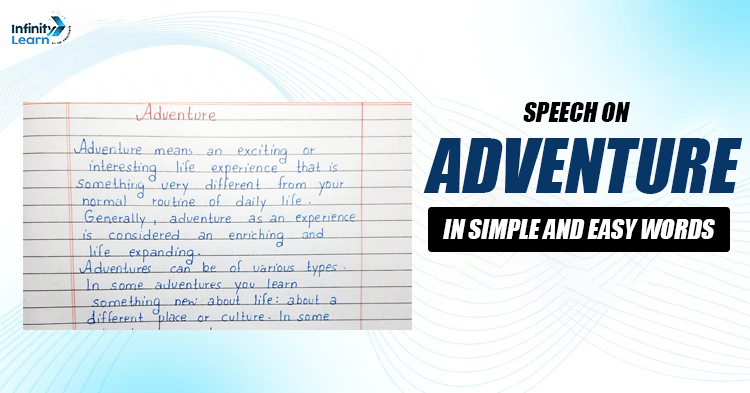 Infinity
Learn
Adventure
Adventure means an exciting or
interesting life experience that is
something very different from your
normal routine of daily life.
Generally, adventure as an experience
is considered an enriching and
life expanding.
Adventures can be of various types.
In some adventures you learn
something new about life: about a
different place or culture. In some
SPEECH ON
ADVENTURE
IN SIMPLE AND EASY WORDS